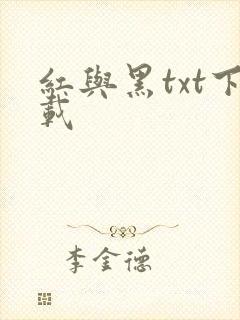 紅與黑txt下
載
李金德